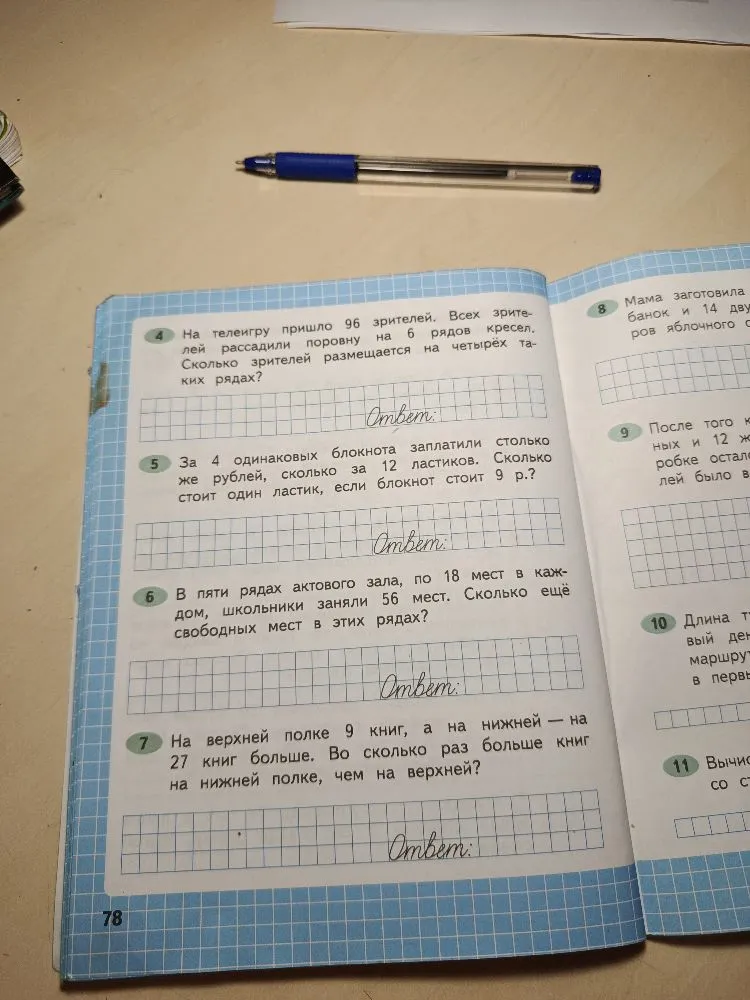 4 На телеигру пришло 96 зрителей. Всех зрите-
лей рассадили поровну на 6 рядов кресел.
Сколько зрителей размещается на четырёх та-
ких рядах?
Ответ:
5 За 4 одинаковых блокнота заплатили столько
же рублей, сколько за 12 ластиков. Сколько
стоит один ластик, если блокнот стоит 9 р.?
Ответ:
6 В пяти рядах актового зала, по 18 мест в каж-
дом, школьники заняли 56 мест. Сколько ещё
свободных мест в этих рядах?
Ответ:
7 На верхней полке 9 книг, а на нижней — на
27 книг больше. Во сколько раз больше книг
на нижней полке, чем на верхней?
Ответ:
78
8 Мама заготовила
банок и 14 дву
ров яблочного с
9 После того к
ных и 12 ж
робке остал
лей было в
10 Длина т
вый ден
маршру
в первы
11 Вычис
со ст